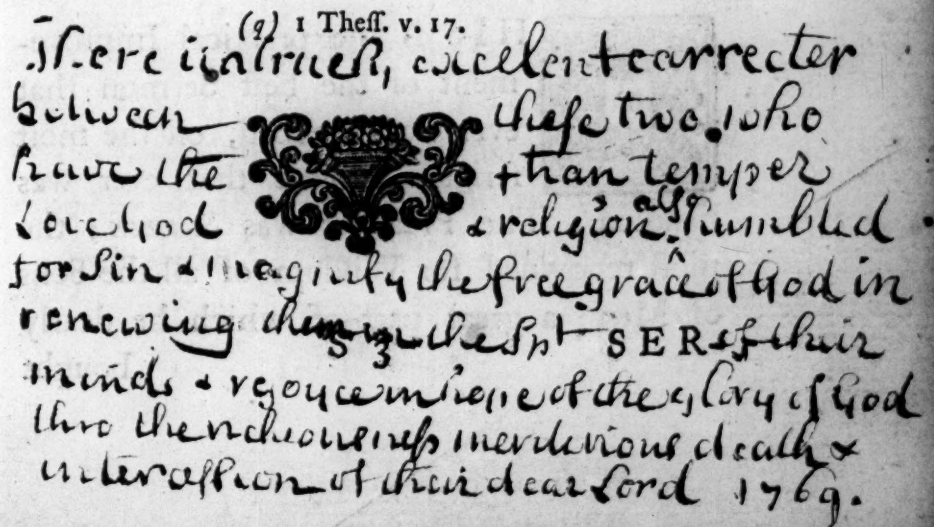 (q) 1 Theſſ. v. 17.
There is a trueſt, excelent carrecter
between theſe two who
have the than temper
Love God & religion. also humbled
for Sin & magnify the free grace of God in
renewing them in the Spt SER of their
minds & rejoyce in hope of the glory of God
thro the richeousneſs meritorious death &
interceſſion of their dear Lord 1769.